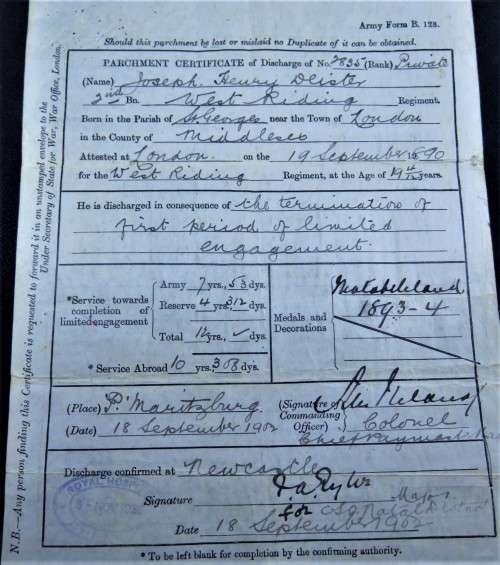 Army Form B. 128.
Should this parchment be lost or mislaid no Duplicate of it can be obtained.
PARCHMENT CERTIFICATE of Discharge of No. 2835 (Rank) Private
(Name) Joseph Henry Deister
2nd Bn. West Riding Regiment.
Born in the Parish of St Georges near the Town of London
in the County of Middlesex
Attested at London. on the 19 September 1890
for the West Riding Regiment, at the Age of 19 4/12 years.
He is discharged in consequence of the termination of
first period of limited
engagement.
*Service towards completion of limited engagement
Army 7 yrs., 53 dys.
Reserve 4 yrs., 312 dys.
Total 12 yrs., dys.
* Service Abroad 10 yrs., 308 dys.
Medals and Decorations
Matabeleland
1893-4
(Place) P. Maritzburg
(Date) 18 September 1902
(Signature of Commanding Officer)
Colonel
Chief Paymast
Discharge confirmed at Newcastle
Signature
Major
for CSO Natal District
Date 18 September 1902
* To be left blank for completion by the confirming authority.
N.B.—Any person finding this Certificate is requested to forward it in an unstamped envelope to the
Under Secretary of State for War, War Office, London.
ROYAL HOSP